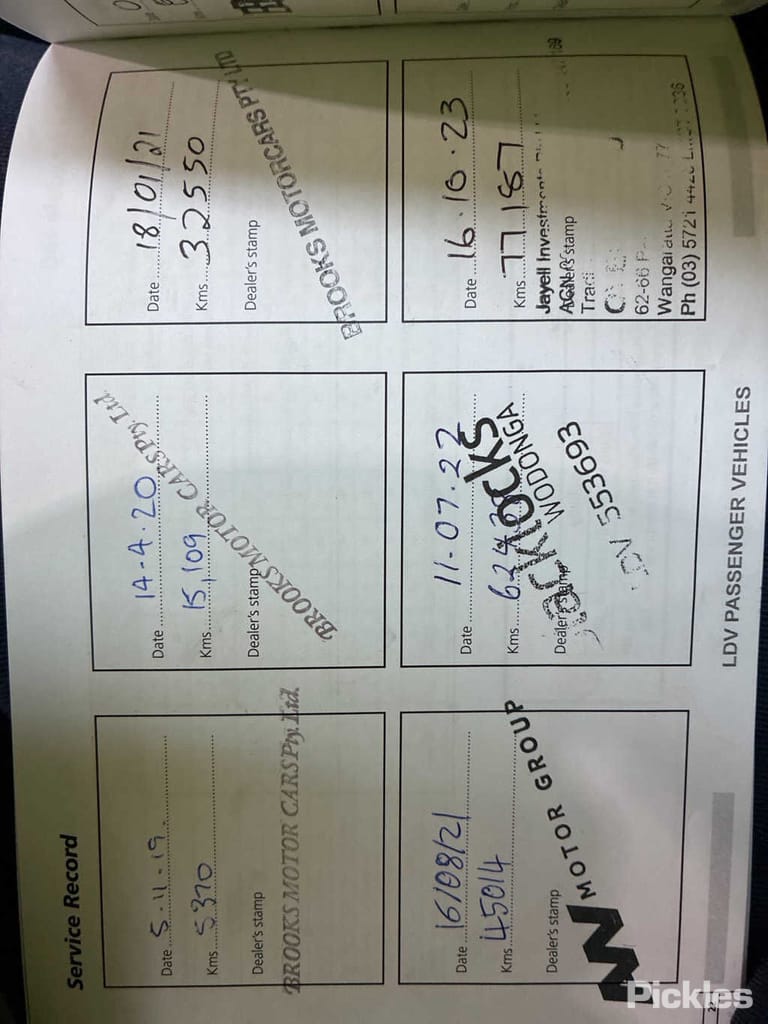 Service Record
Date 5.11.19
Kms 5370
Dealer's stamp
BROOKS MOTOR CARS Pty. Ltd.
Date 14-4.20
Kms 15,109
Dealer's stamp
BROOKS MOTOR CARS Pty. Ltd.
Date 18/01/21
Kms 32550
Dealer's stamp
BROOKS MOTORCARS PTY LTD
Date 16/08/21
Kms 45014
Dealer's stamp
MOTOR GROUP
Date 11.07.22
Kms
Dealer's stamp
Jacklocks
WODONGA
LDV 553693
Date 16.10.23
Kms 77187
Dealer's stamp
Jayell Investments
ACN
62-66
Ph (03) 5721
LDV PASSENGER VEHICLES
Pickles